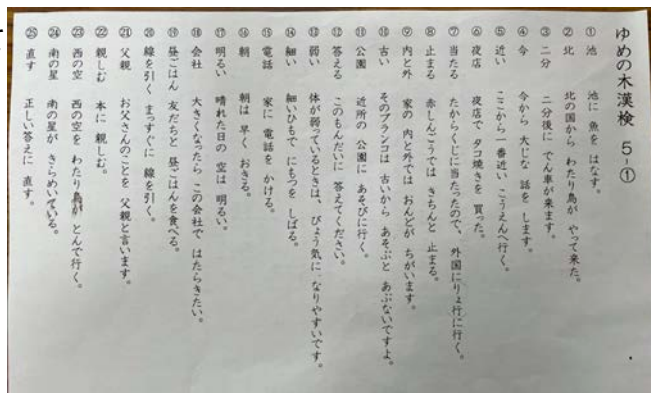 ゆめの木漢検 5-①
① 池 池に 魚を はなす。
② 北 北の国から わたり鳥が やって来た。
③ 二分 二分後に でん車が来ます。
④ 今 今から 大じな 話を します。
⑤ 近い ここから一番近い こうえんへ行く。
⑥ 夜店 夜店で タコ焼きを 買った。
⑦ 当たる たからくじに当たったので、外国にりょ行に行く。
⑧ 止まる 赤しんごうでは きちんと 止まる。
⑨ 内と外 家の 内と外では おんどが ちがいます。
⑩ 古い そのブランコは 古いから あそぶと あぶないですよ。
⑪ 公園 近所の 公園に あそびに行く。
⑫ 答える このもんだいに 答えてください。
⑬ 弱い 体が弱っているときは、びょう気に なりやすいです。
⑭ 細い 細いひもで にもつを しばる。
⑮ 電話 家に 電話を かける。
⑯ 朝 朝は 早く おきる。
⑰ 明るい 晴れた日の 空は 明るい。
⑱ 会社 大きくなったら この会社で はたらきたい。
⑲ 昼ごはん 友だちと 昼ごはんを食べる。
⑳ 線を引く まっすぐに 線を引く。
㉑ 父親 お父さんのことを 父親と言います。
㉒ 親しむ 本に 親しむ。
㉓ 西の空 西の空を わたり鳥が とんで行く。
㉔ 南の星 南の星が きらめいている。
㉕ 直す 正しい答えに 直す。